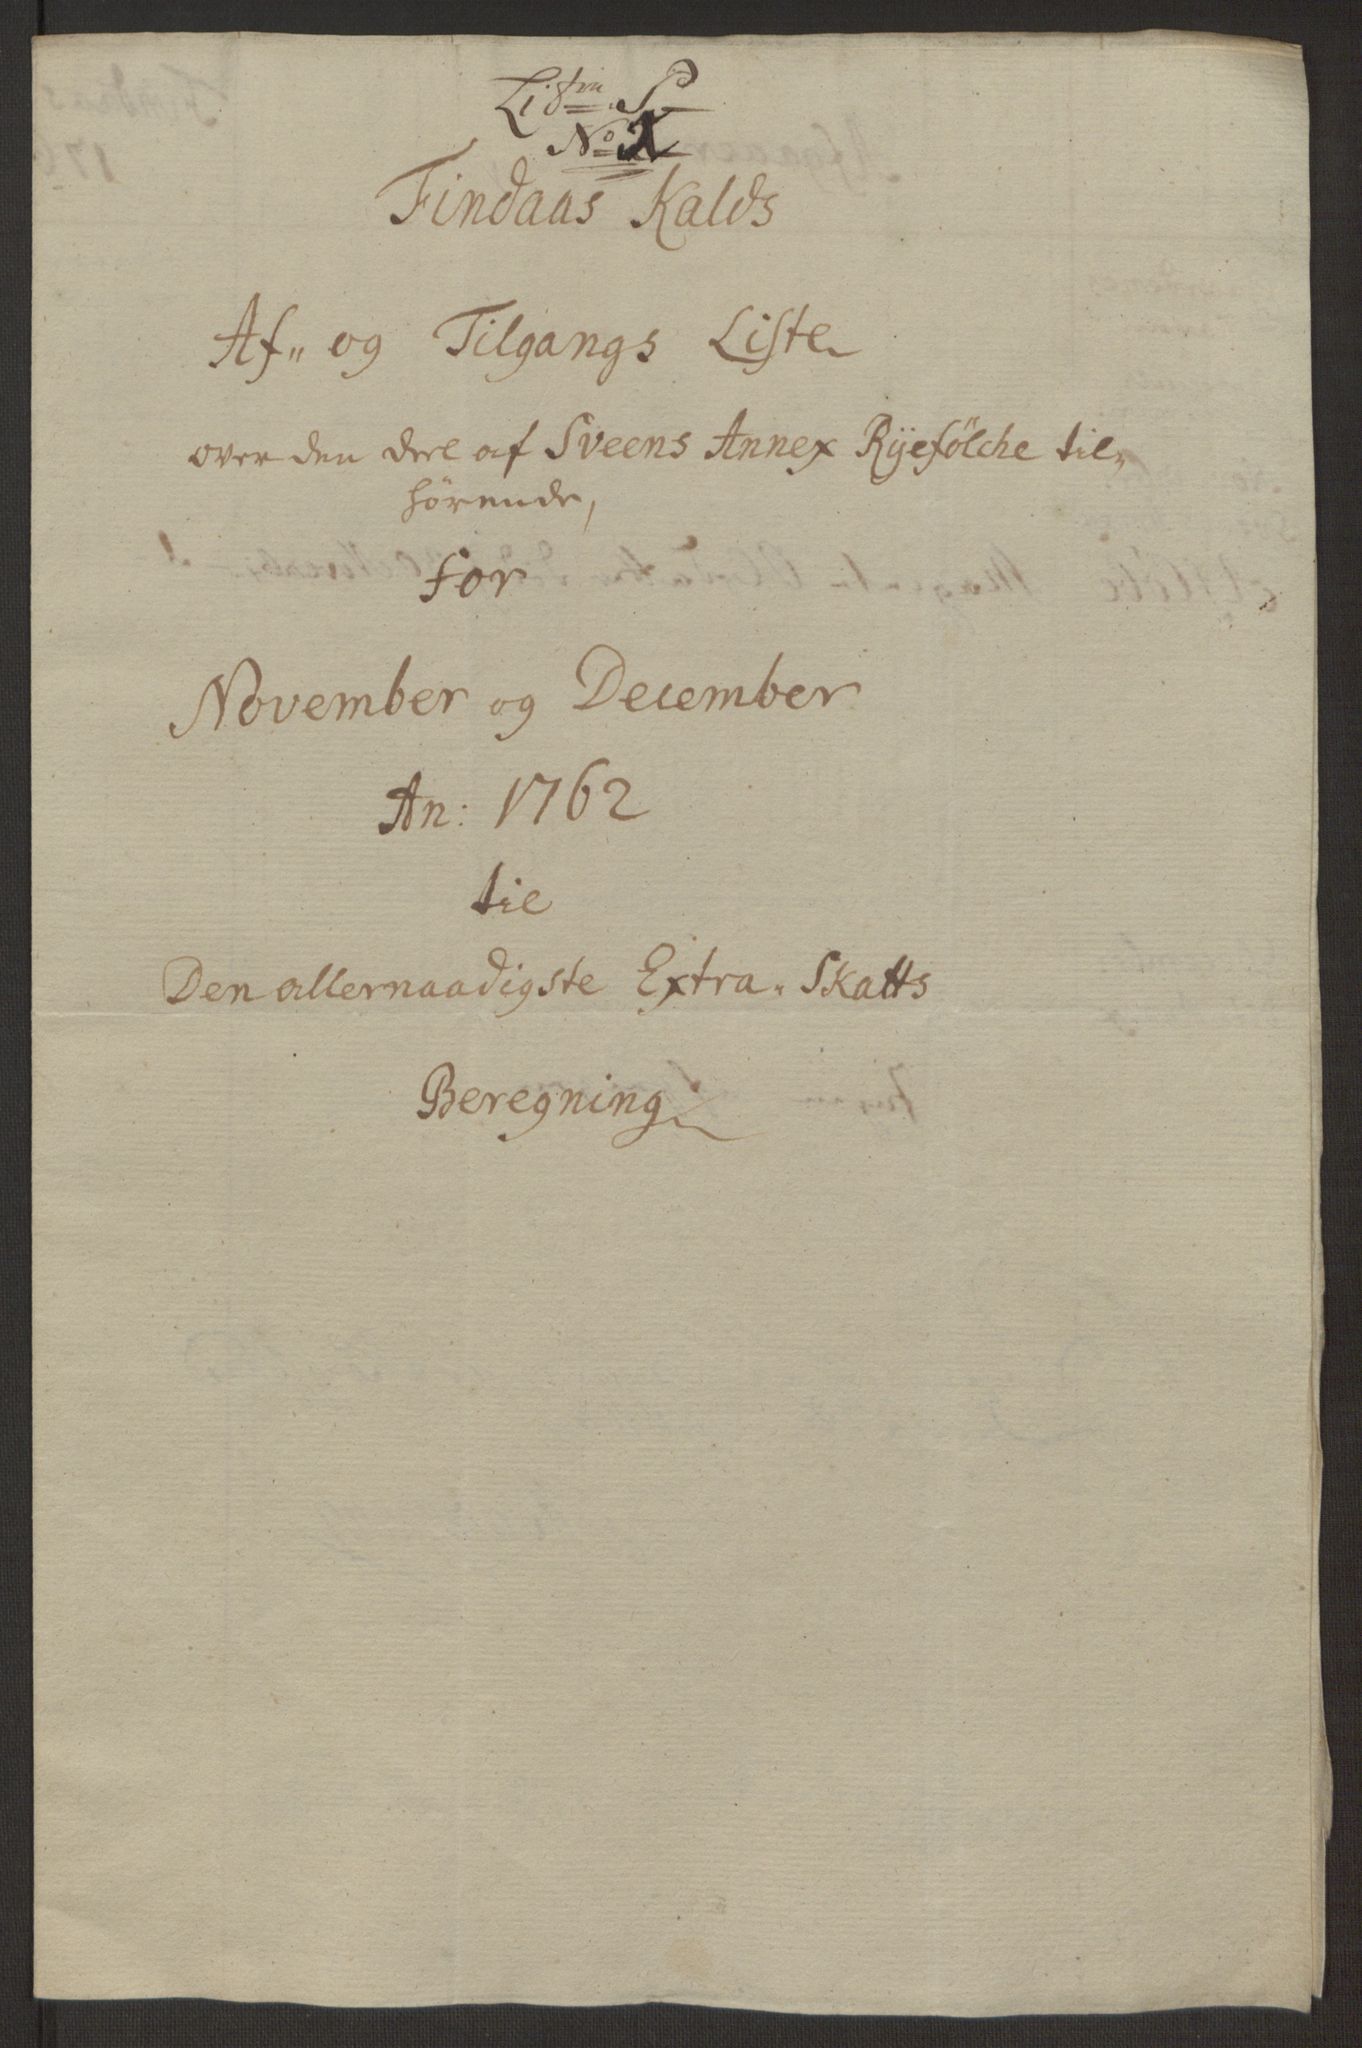 No
Findaas Kalds
Af„ og Tilgangs Liste
over den deel af Sveens Annex Ryefölche til„
hørende,
for
November og December
An: 1762
til
Den allernaadigste Extra„ Skatts
Beregning